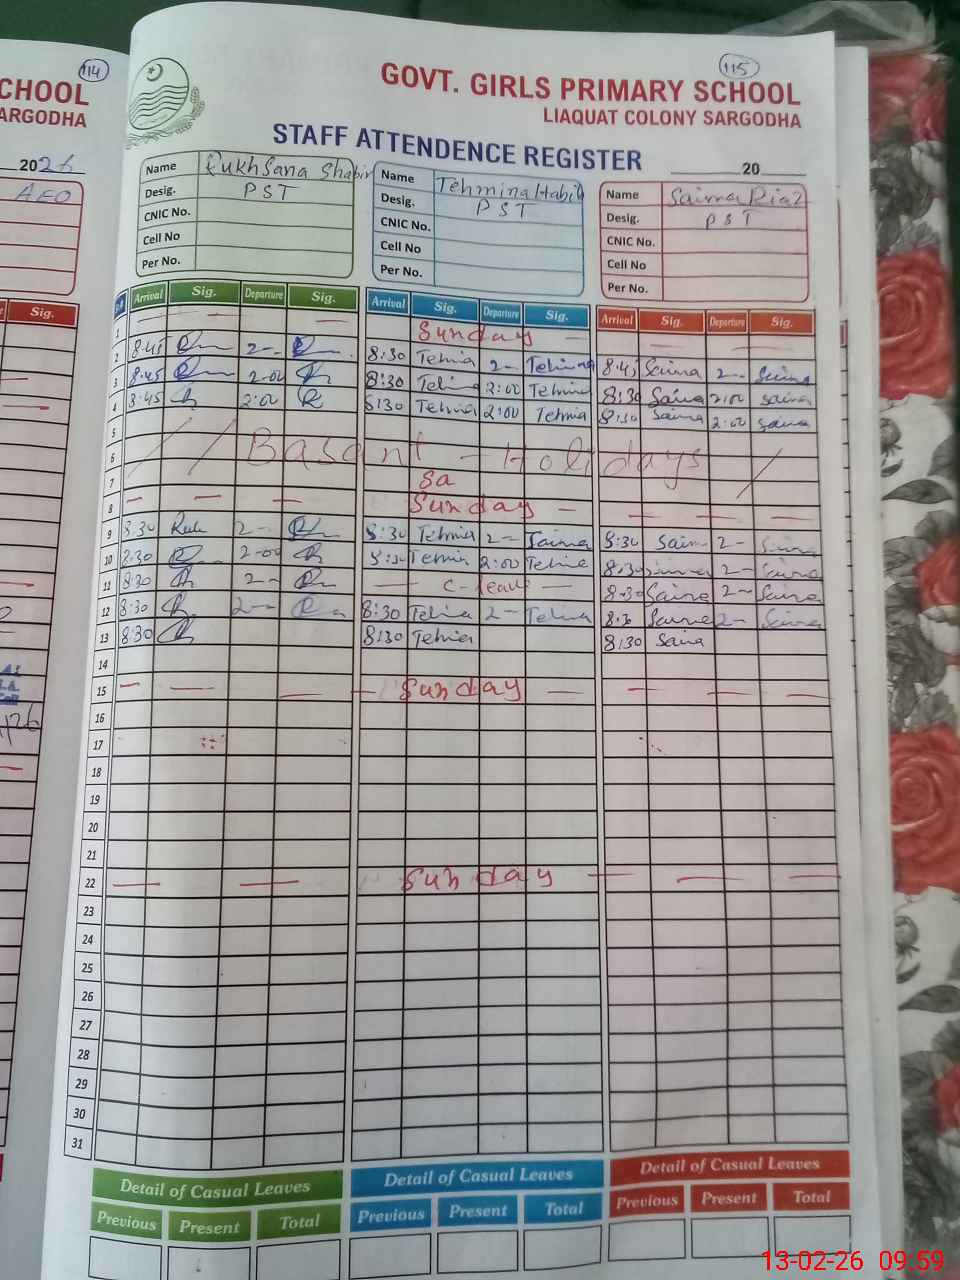 114
CHOOL
ARGODHA
2026
AEO
Sig.
115
GOVT. GIRLS PRIMARY SCHOOL
LIAQUAT COLONY SARGODHA
STAFF ATTENDENCE REGISTER
20
Name Rukhsana Shabir
Desig. PST
CNIC No.
Cell No
Per No.
Name Tehmina Habib
Desig. PST
CNIC No.
Cell No
Per No.
Name Saima Riaz
Desig. PST
CNIC No.
Cell No
Per No.
Arrival Sig. Departure Sig. Arrival Sig. Departure Sig. Arrival Sig. Departure Sig.
1 Sunday
2 8:45 2- 8:30 Tehmia 2- Tehmina 8:45 Saima 2- Saima
3 8:45 2:00 8:30 Tehmina 2:00 Tehmina 8:30 Saima 2:00 Saima
4 8:45 2:00 8:30 Tehmia 2:00 Tehmia 8:30 Saima 2:00 Saima
5
6 Basant - Holidays
7 Sa
8 Sunday
9 8:30 Rukh 2- 8:30 Tehmia 2- Saima 8:30 Saima 2- Saima
10 8:30 2:00 8:30 Tehmia 2:00 Tehmia 8:30 Saima 2- Saima
11 8:30 2- C-leave 8:30 Saima 2- Saima
12 8:30 2- 8:30 Tehmia 2- Tehmia 8:30 Saima 2- Saima
13 8:30 8:30 Tehmia 8:30 Saima
14
15 Sunday
16
17
18
19
20
21
22 Sunday
23
24
25
26
27
28
29
30
31
Detail of Casual Leaves Detail of Casual Leaves Detail of Casual Leaves
Previous Present Total Previous Present Total Previous Present Total
13-02-26 09:59